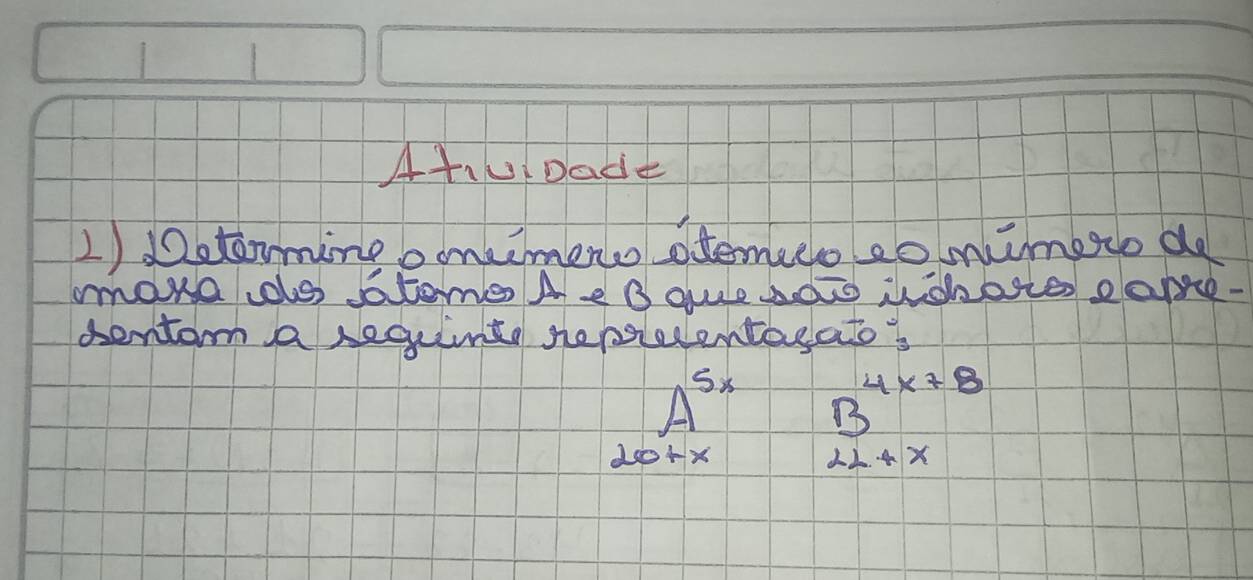 Atividade
1) Determine o número átomico e o número de
massa dos átomos A e B que são isóbaros e apre-
sentam a seguinte representação:
5x 4x+8
A B
10+x 11+x